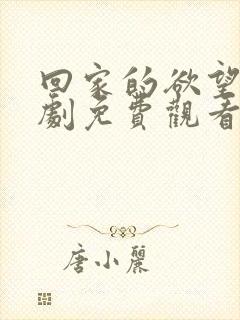 回家的欲望
劇免費觀看
唐小麗